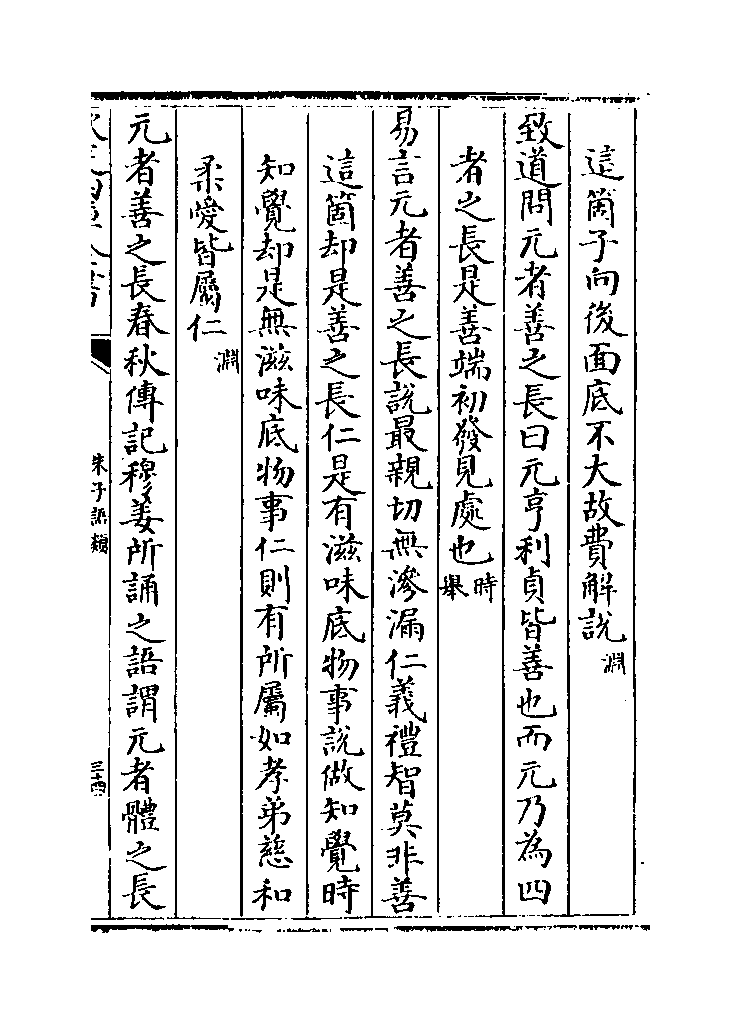 這箇子向後面底不大故費解說淵
致道問元者善之長曰元亨利貞皆善也而元乃為四
者之長是善端初發見處也時舉
易言元者善之長說最親切無滲漏仁義禮智莫非善
這箇却是善之長仁是有滋味底物事說做知覺時
知覺却是無滋味底物事仁則有所屬如孝弟慈和
柔愛皆屬仁淵
元者善之長春秋傳記穆姜所誦之語謂元者體之長
朱子語類
三十四